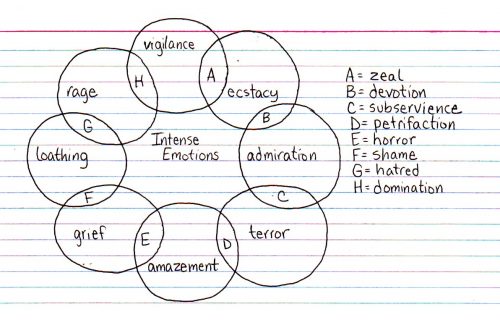 vigilance
H
A
rage
ecstacy
G
B
Intense
Emotions
loathing
admiration
F
C
grief
E
D
terror
amazement
A = zeal
B = devotion
C = subservience
D = petrifaction
E = horror
F = shame
G = hatred
H = domination